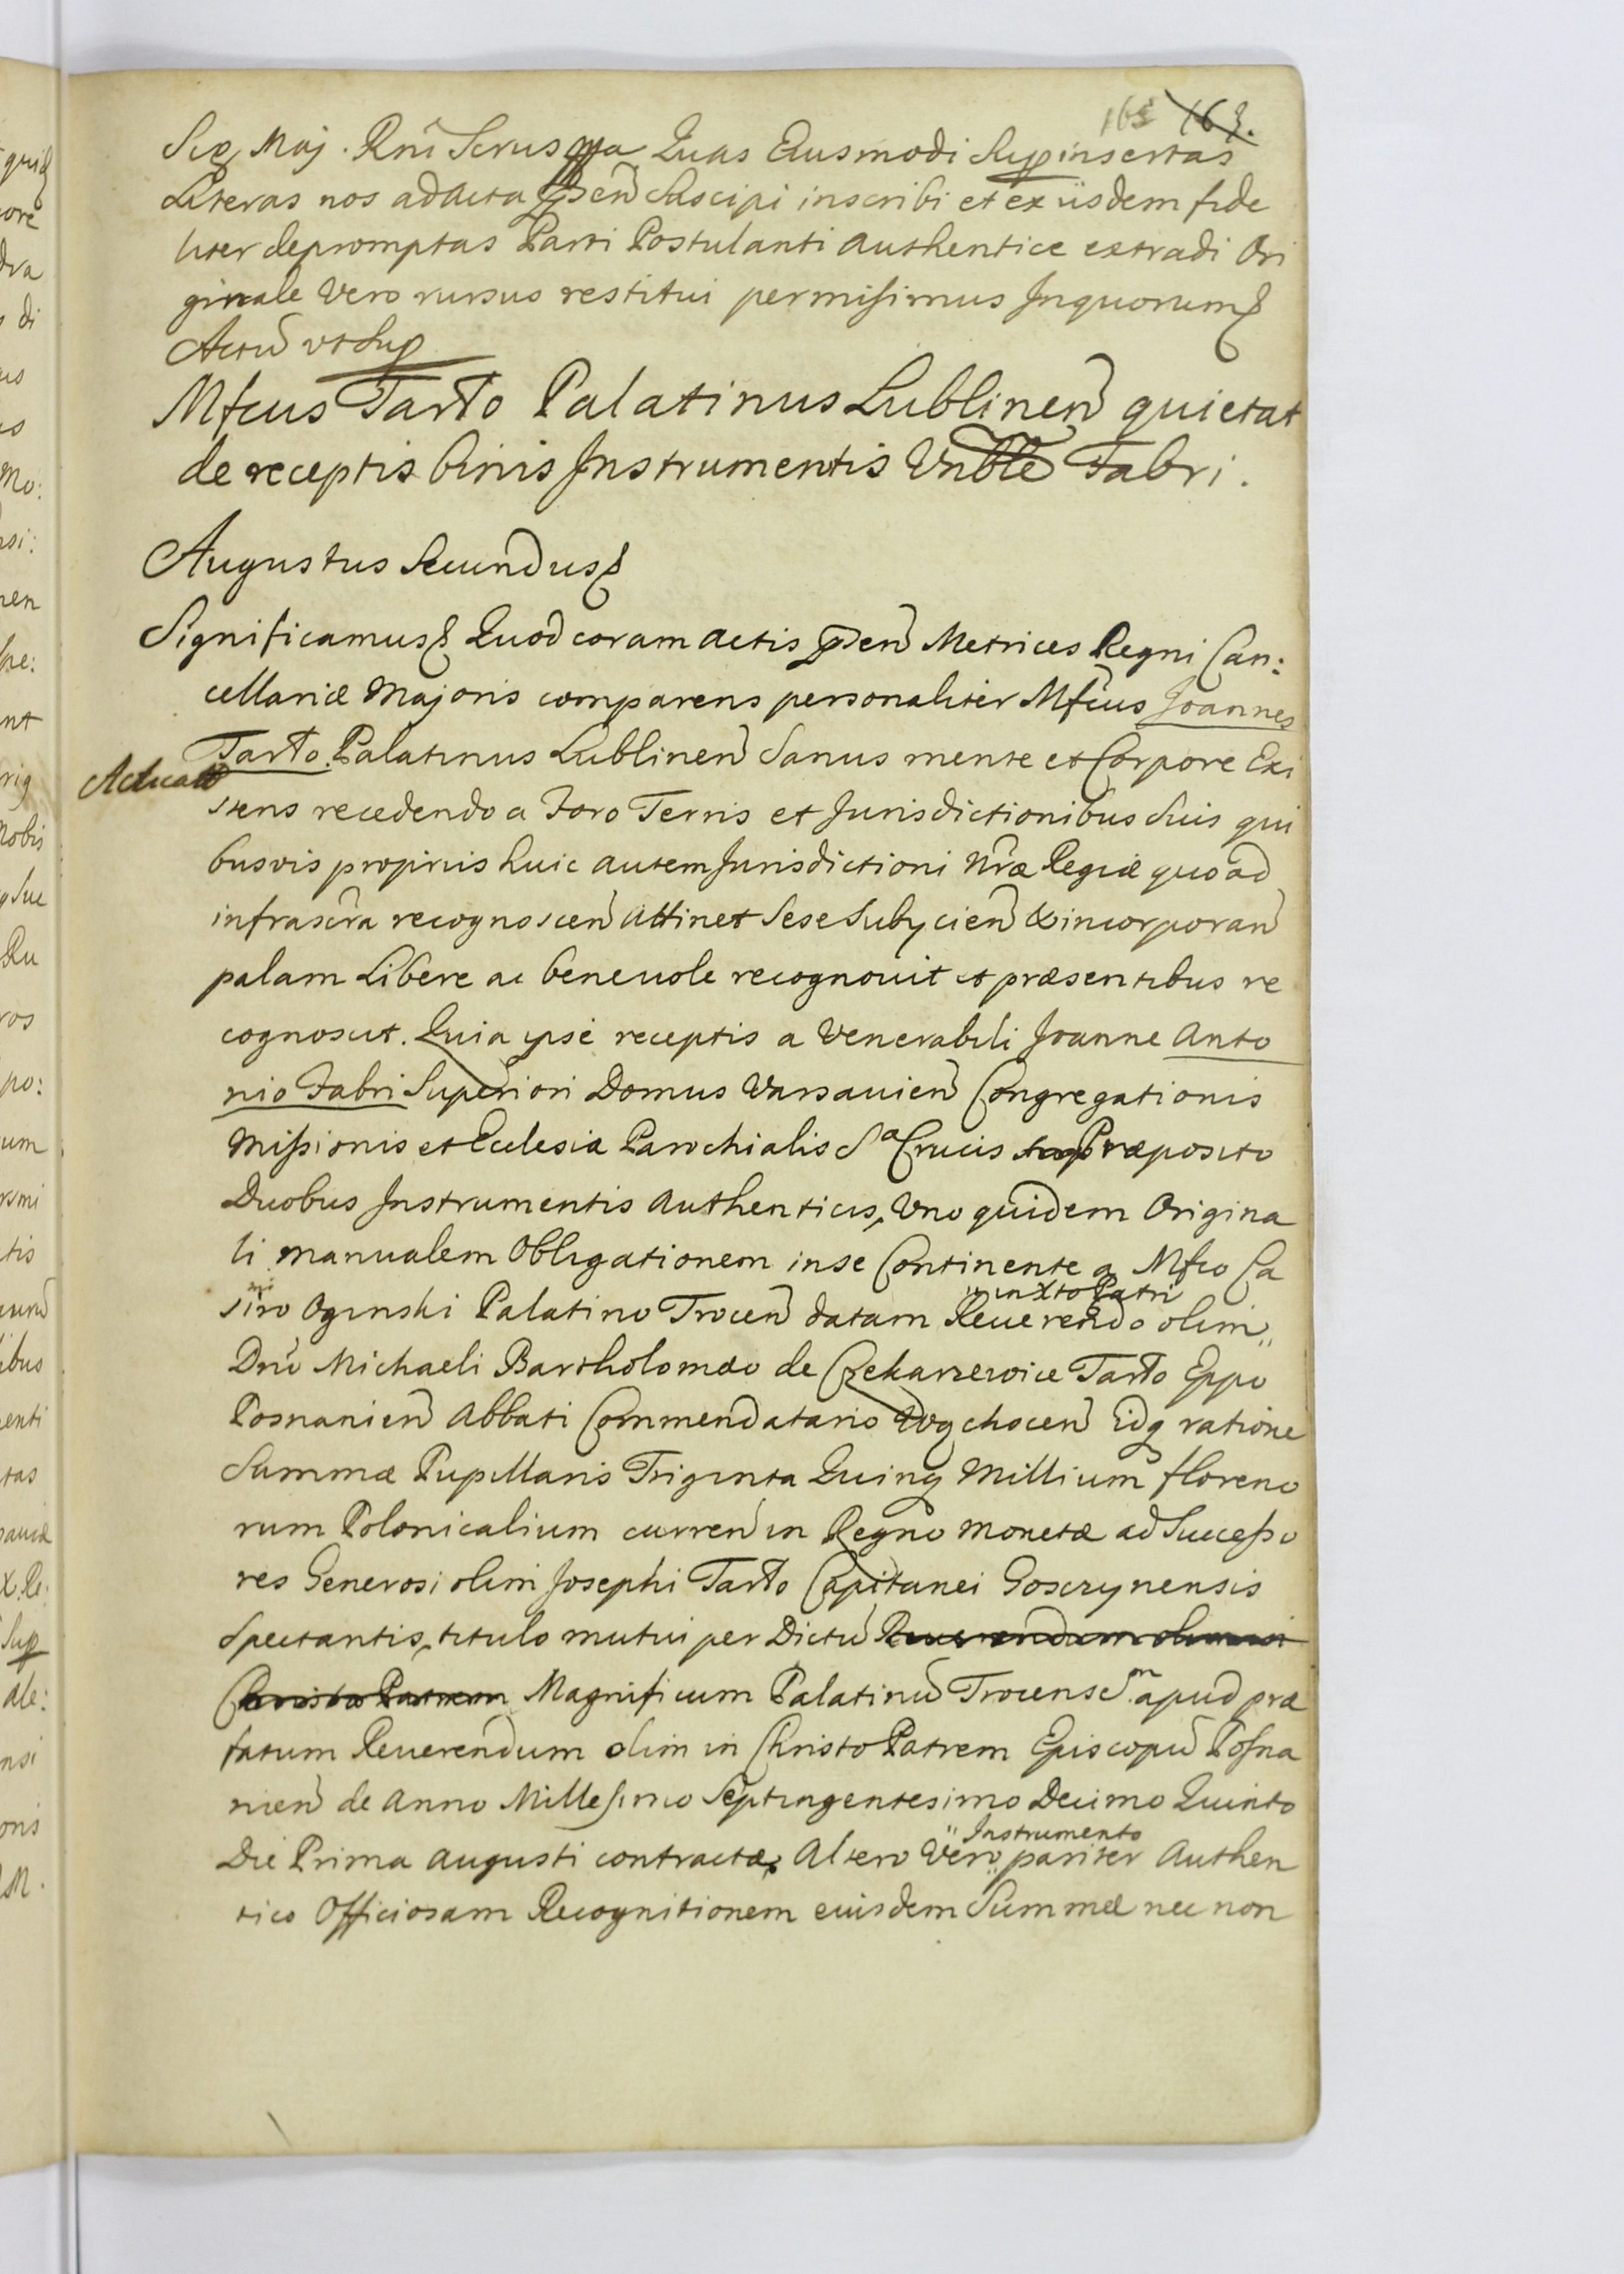 163 163.
Sig Maj. Rni Scrus mpa Quas Eiusmodi Sup insertas
Literas nos ad acta psen Suscipi inscribi et ex iisdem fide
liter depromptas Parti Postulanti authentice extradi Ori
ginale Vero rursus restitui permisimus Inquorum
Actu vt Sup
Mfcus Tarło Palatinus Lublinen quietat
de receptis binis Instrumentis Vnble Fabri.
Augustus Secundus
Significamus Quod coram actis psen Metrices Regni Can:
cellariæ Majoris comparens personaliter Mfcus Joannes
Tarło Palatinus Lublinen Sanus mente et Corpore Exi
stens recedendo a Foro Terris et Jurisdictionibus Suis qui
busvis proprijs huic autem Jurisdictioni Nræ Regiæ quo ad
infrascra recognoscen attinet Sese Subycien & incorporan
palam Libere ac beneuole recognouit et præsentibus re
cognoscit. Quia ipse receptis a Venerabili Joanne Anto
nio Fabri Superiori Domus Varsauien Congregationis
Missionis et Ecclesiæ Parochialis S Crucis Præposito
Duobus Instrumentis Authenticis, Vno quidem Origina
li manualem Obligationem in se Continente a Mfco Ca
simiro Oginski Palatino Trocen datam Reuerendo olim
in Xto Patri
Dno Michaeli Bartholomæo de Czekarzewice Tarło Eppo
Posnanien Abbati Commendatario Wąchocen idq ratione
Summæ Pupillaris Triginta Quinq Millium floreno
rum Polonicalium curren in Regno monetæ ad Successo
res Generosi olim Josephi Tarło Capitanei Goszynensis
Spectantis, titulo mutui per Dictu Reuerendum olim in
Christo Patrem Magnificum Palatinu Trocensem apud præ
fatum Reuerendum olim in Christo Patrem Episcopu Posna
nien de Anno Millesimo Septingentesimo Decimo Quinto
Die Prima Augusti contractæ, Altero Vero pariter Authen
Instrumento
tico Officiosam Recognitionem eiusdem Summæ nec non